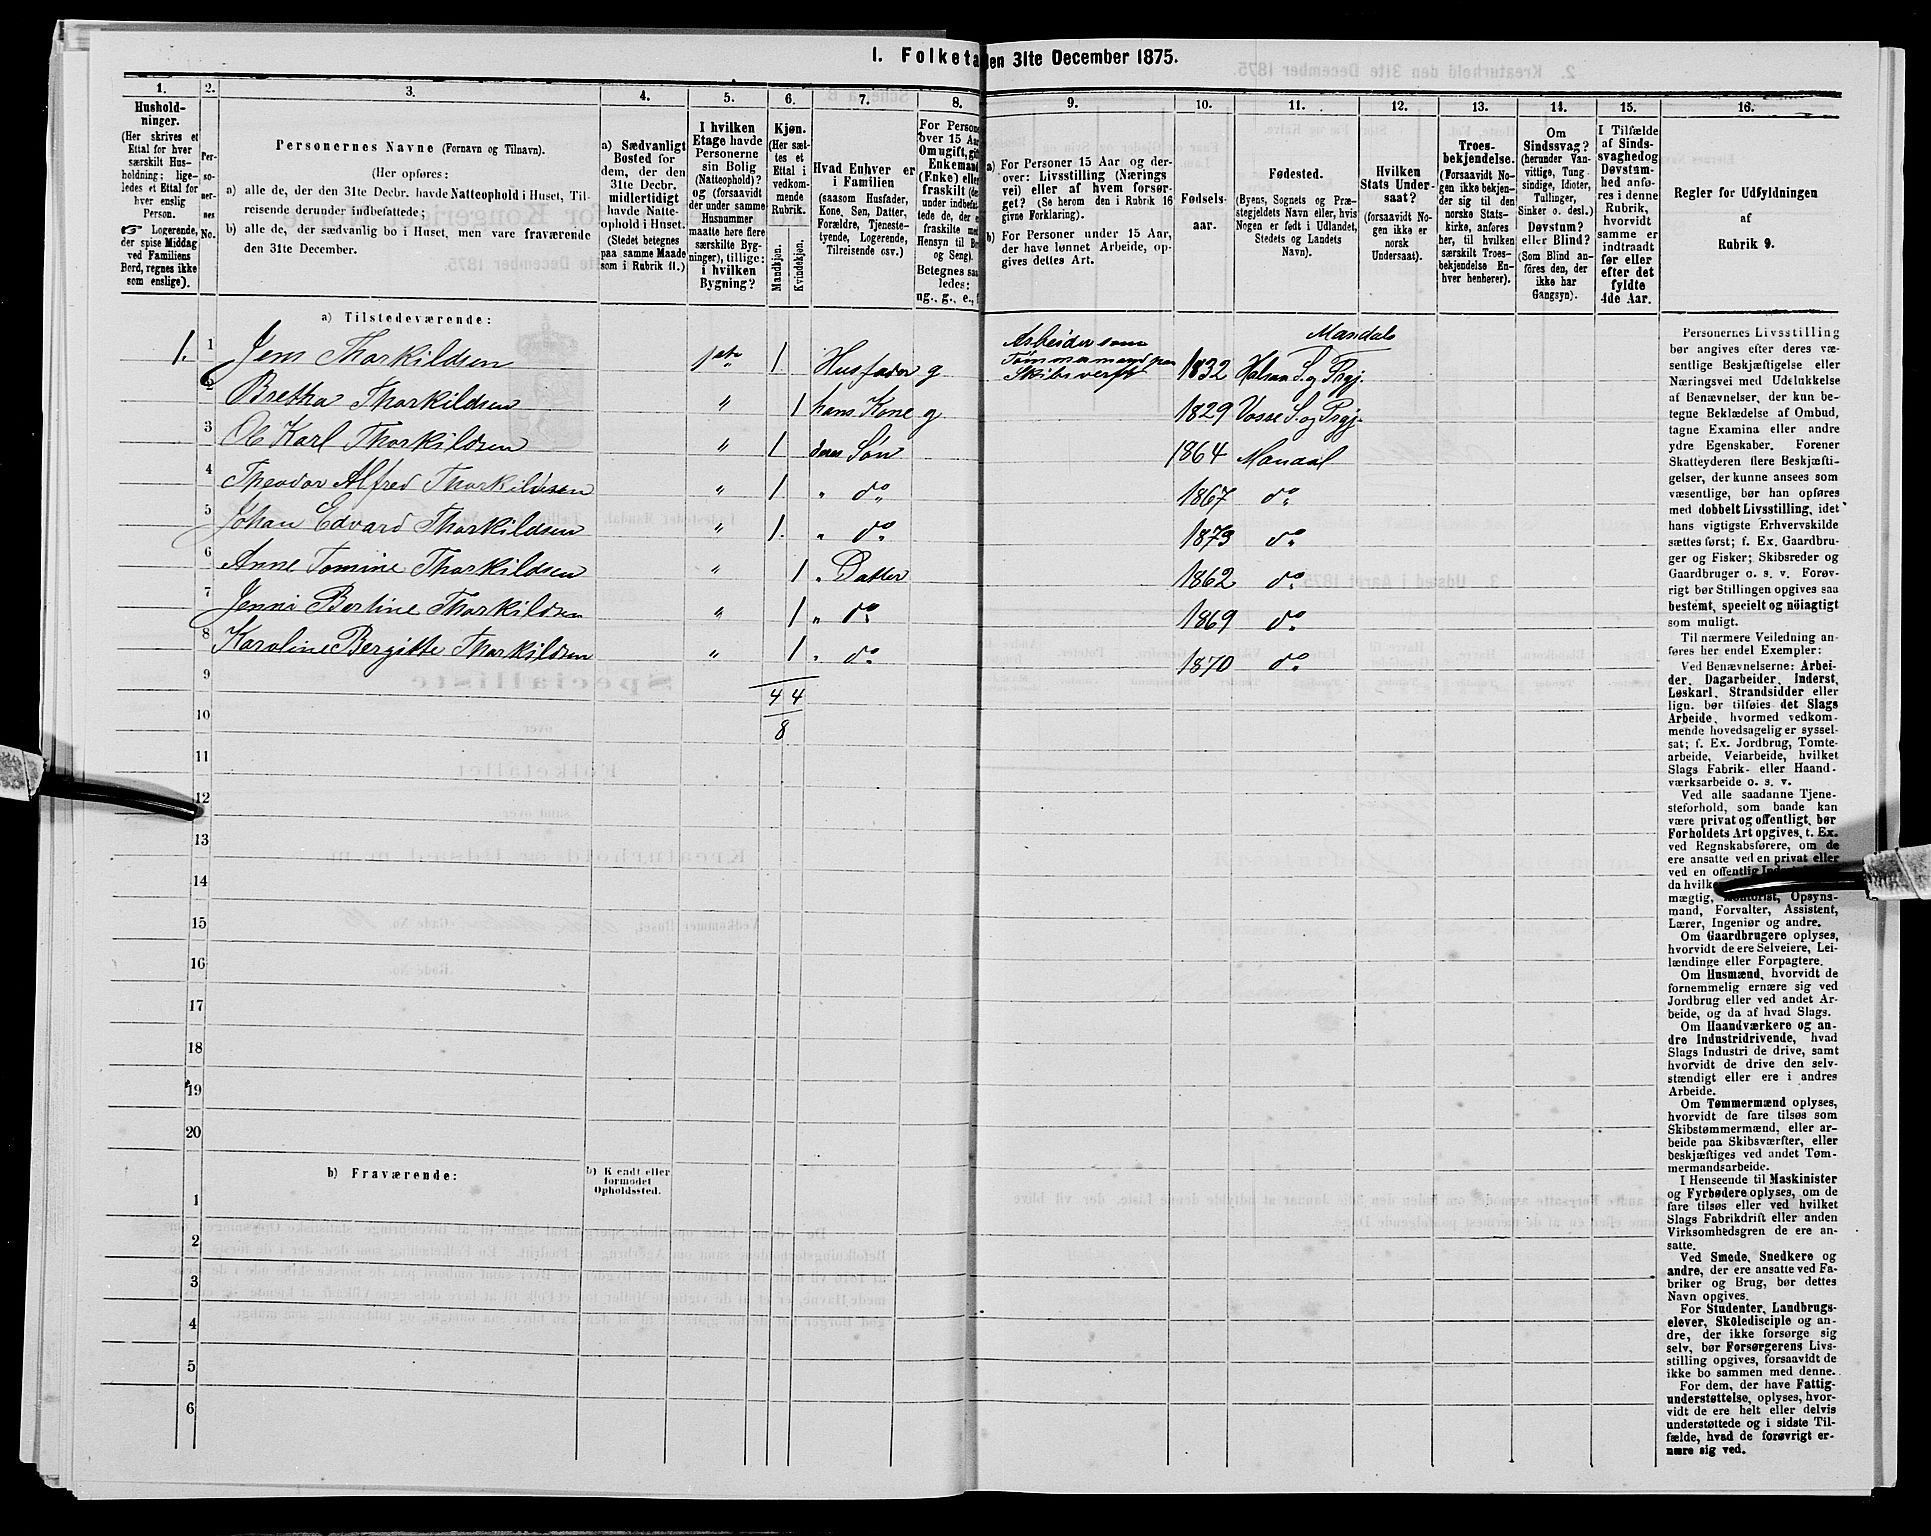 1. Folketa len 31te December 1875.
1.
2.
3.
4.
5.
6.
7.
8.
9.
10.
11.
12.
13.
14.
15.
16.
Hushold-
ninger.
(Her skrives et
Ettal for hver
særskilt Hus-
holdning; lige-
ledes et Ettal for
hver enslig
Person.
☞ Logerende,
der spise Middag
ved Familiens
Bord, regnes ikke
som enslige).
Per-
so-
ner-
nes
No.
Personernes Navne (Fornavn og Tilnavn).
(Her opføres:
a) alle de, der den 31te Decbr. havde Natteophold i Huset, Til-
reisende derunder indbefattede;
b) alle de, der sædvanlig bo i Huset, men vare fraværende
den 31te December.
a) Sædvanligt
Bosted for
dem, der den
31te Decbr.
midlertidigt
havde Natte-
ophold i Huset.
(Stedet betegnes
paa samme Maade
som i Rubrik 11.)
I hvilken
Etage havde
Personerne
sin Bolig
(Natteophold)?
og (forsaavidt
der under samme
Husnummer
maatte høre flere
særskilte Byg-
ninger), tillige:
i hvilken
Bygning?
Kjøn.
(Her sæt-
tes et
Ettal i
vedkom-
mende
Rubrik.
Mandkjøn.
Kvindekjøn.
Hvad Enhver er
i Familien
(saasom Husfader,
Kone, Søn, Datter,
Forældre, Tjeneste-
tyende, Logerende,
Tilreisende osv.).
For Persone
over 15 Aar
Om ugift, gif
Enkemand
(Enke) eller
fraskilt (de
under indbefat-
tede de, der e
fraskilte me
Hensyn til Bo
og Seng).
Betegnes saa
ledes:
ug., g., e., f
a) For Personer 15 Aar og der-
over: Livsstilling (Nærings
vei) eller af hvem forsør-
get? (Se herom den i Rubrik 16
givne Forklaring).
b) For Personer under 15 Aar,
der have lønnet Arbeide, op-
gives dettes Art.
Fødsels-
aar.
Fødested.
(Byens, Sognets og Præ-
stegjeldets Navn eller, hvis
Nogen er født i Udlandet,
Stedets og Landets
Navn).
Hvilken
Stats Under-
saat?
(forsaavidt No-
gen ikke er
norsk
Undersaat).
Troes-
bekjendelse.
(Forsaavidt No-
gen ikke bekjen-
der sig til den
norske Stats-
kirke, anføres
her, til hvilken
særskilt Troes-
bekjendelse En-
hver henhører).
Om
Sindssvag?
(herunder Van-
vittige, Tung-
sindige, Idioter,
Tullinger,
Sinker o. desl.)
Døvstum?
eller Blind?
(Som Blind an-
føres den, der
ikke har
Gangsyn).
I Tilfælde
af Sinds-
svaghed og
Døvstum-
hed anfø-
res i denne
Rubrik,
hvorvidt
samme er
indtraadt
før eller
efter det
fyldte
4de Aar.
Regler for Udfyldningen
af
Rubrik 9.
a) Tilstedeværende:
1. 1 Jens Thorkildsen 1ste 1 Husfader g Arbeider som Tømmermand paa Skibsverft 1832 Halsan S. og Prgj. Mandals
2 Bretha Thorkildsen " 1 hans Kone g 1829 Vosse S. og Prgj.
3 Ol Karl Thorkildsen " 1 deres Søn 1864 Mandal
4 Theodor Alfred Thorkildsen " 1. " do 1867 do
5 Johan Edvard Thorkildsen " 1. " do 1873 do
6 Anne Tomine Thorkildsen " 1 " Datter 1862 do
7 Jenni Bertine Thorkildsen " 1 " do 1869 do
8 Karoline Bergitte Thorkildsen " 1 " do 1870 do
9 4 4
10 8
11
12
13
14
15
16
17
18
19
20
b) Fraværende:
b) Kjendt eller
formodet
Opholdssted.
1
2
3
4
5
6
Personernes Livsstilling
bør angives efter deres væ-
sentlige Beskjæftigelse eller
Næringsvei med Udelukkelse
af Benævnelser, der kun be-
tegne Beklædelse af Ombud,
tagne Examina eller andre
ydre Egenskaber. Forener
Skatteyderen flere Beskjæfti-
gelser, der kunne ansees som
væsentlige, bør han opføres
med dobbelt Livsstilling, idet
hans vigtigste Erhvervskilde
sættes først; f. Ex. Gaardbru-
ger og Fisker; Skibsreder og
Gaardbruger o. s. v. Forøv-
rigt bør Stillingen opgives saa
bestemt, specielt og nöiagtigt
som muligt.
Til nærmere Veiledning an-
føres her endel Exempler:
Ved Benævnelserne: Arbei-
der, Dagarbeider, Inderst,
Løskarl, Strandsidder eller
lign. bør tilføies det Slags
Arbeide, hvormed vedkom-
mende hovedsagelig er syssel-
sat; f. Ex. Jordbrug, Tomte-
arbeide, Veiarbeide, hvilket
Slags Fabrik- eller Haand-
værksarbeide o. s. v.
Ved alle saadanne Tjene-
steforhold, som baade kan
være privat og offentligt, bør
Forholdets Art opgives, t. Ex.
ved Regnskabsførere, om de
ere ansatte ved en privat eller
ved en offentlig
da hvilk
mægtig, Kontorist, Opsyns-
mand, Forvalter, Assistent,
Lærer, Ingeniør og andre.
Om Gaardbrugere oplyses,
hvorvidt de ere Selveiere, Lei-
lændinge eller Forpagtere.
Om Husmænd, hvorvidt de
fornemmelig ernære sig ved
Jordbrug eller ved andet Ar-
beide, og da af hvad Slags.
Om Haandværkere og an-
dre Industridrivende, hvad
Slags Industri de drive, samt
hvorvidt de drive den selv-
stændigt eller ere i andres
Arbeide.
Om Tømmermænd oplyses,
hvorvidt de fare tilsøs som
Skibstømmermænd, eller ar-
beide paa Skibsværfter, eller
beskjæftiges ved andet Tøm-
mermandsarbeide.
I Henseende til Maskinister
og Fyrbødere oplyses, om de
fare tilsøs eller ved hvilket
Slags Fabrikdrift eller anden
Virksomhedsgren de ere an-
satte.
Ved Smede, Snedkere og
andre, der ere ansatte ved Fa-
briker og Brug, bør dettes
Navn opgives.
For Studenter, Landbrugs-
elever, Skoledisciple og an-
dre, der ikke forsørge sig
selv, bør Forsørgerens Livs-
stilling opgives, forsaavidt de
ikke bo sammen med denne.
For dem, der have Fattig-
understøttelse, oplyses, hvor-
vidt de ere helt eller delvis
understøttede og i sidste Til-
fælde, hvad de forøvrigt er-
nære sig ved.